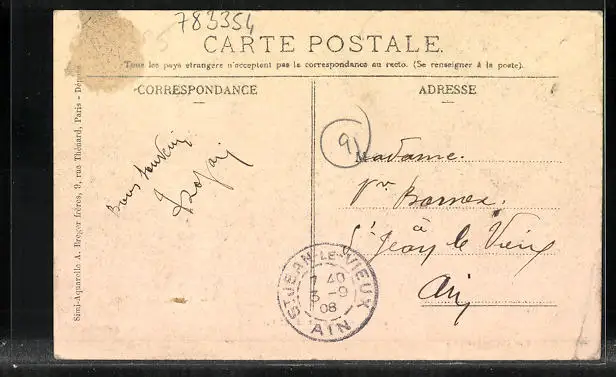 783354
CARTE POSTALE.
Tous les pays étrangers n'acceptent pas la correspondance au recto. (Se renseigner à la poste).
CORRESPONDANCE
ADRESSE
Simi-Aquarelle A. Breger frères, 9, rue Thénard, Paris - Déposé
Bons Souvenirs
91
Madame
à
St Jean le Vieux
Ain
ST JEAN-LE-VIEUX
7 40
3 -9
08
AIN